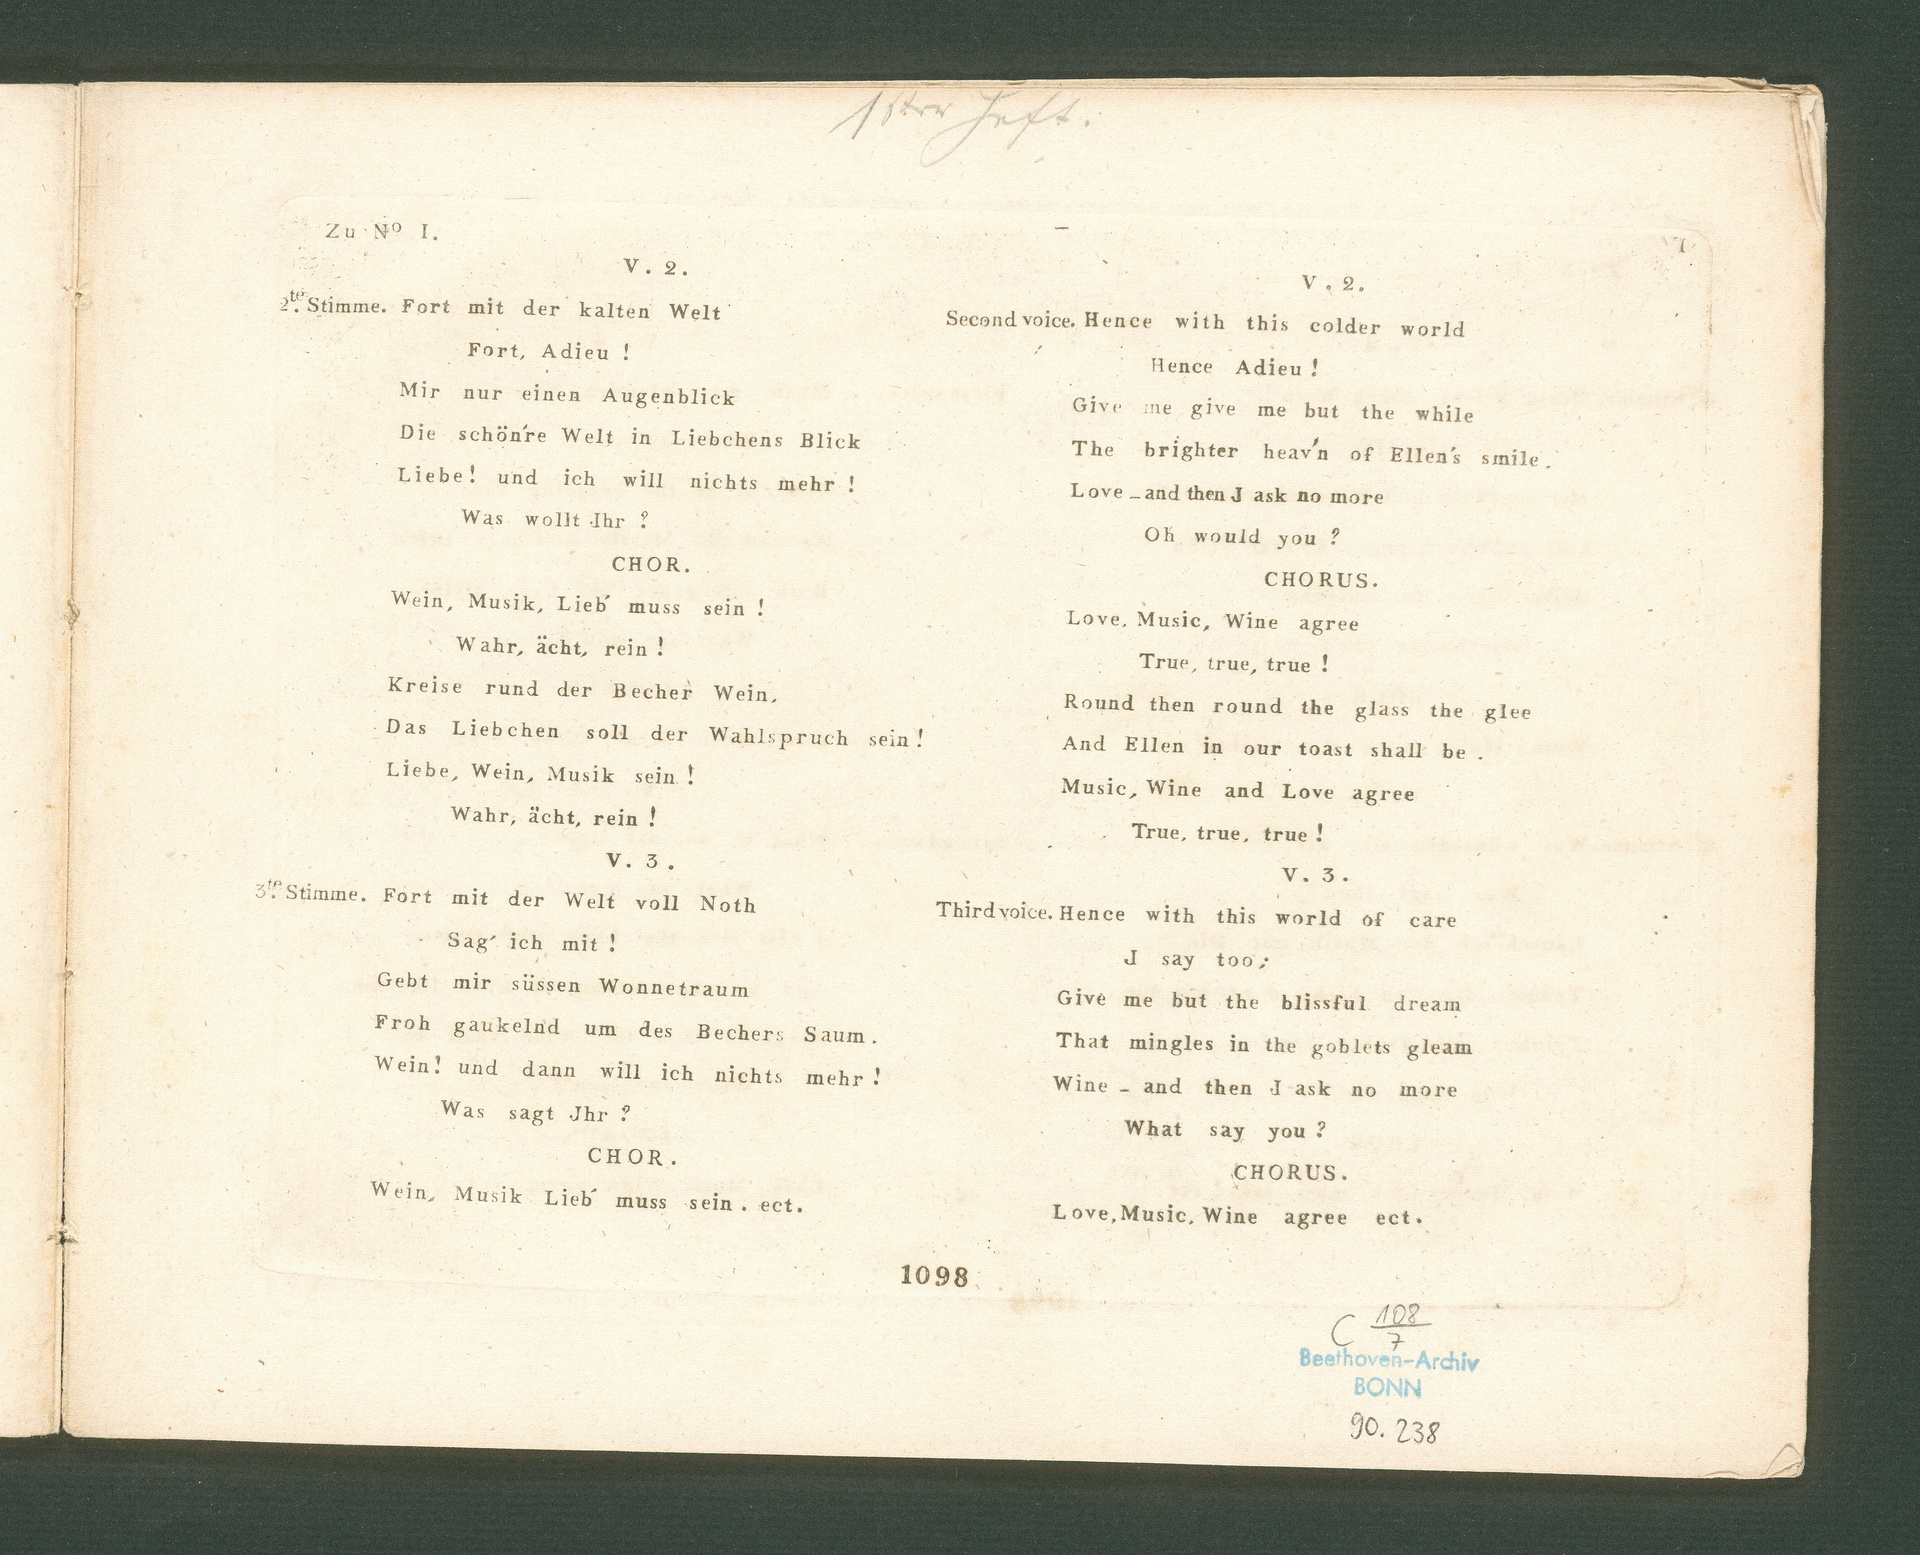 1ster Heft.
Zu No I.
V. 2.
2te. Stimme. Fort mit der kalten Welt
Fort, Adieu !
Mir nur einen Augenblick
Die schön're Welt in Liebchens Blick
Liebe! und ich will nichts mehr !
Was wollt Jhr ?
CHOR.
Wein, Musik, Lieb' muss sein !
Wahr, ächt, rein !
Kreise rund der Becher Wein,
Das Liebchen soll der Wahlspruch sein !
Liebe, Wein, Musik sein !
Wahr, ächt, rein !
V. 3.
3te. Stimme. Fort mit der Welt voll Noth
Sag' ich mit !
Gebt mir süssen Wonnetraum
Froh gaukelnd um des Bechers Saum.
Wein! und dann will ich nichts mehr !
Was sagt Jhr ?
CHOR.
Wein, Musik Lieb' muss sein. ect.
V. 2.
Second voice. Hence with this colder world
Hence Adieu !
Give me give me but the while
The brighter heav'n of Ellen's smile.
Love _ and then J ask no more
Oh would you ?
CHORUS.
Love, Music, Wine agree
True, true, true !
Round then round the glass the glee
And Ellen in our toast shall be.
Music, Wine and Love agree
True, true, true !
V. 3.
Third voice. Hence with this world of care
J say too;
Give me but the blissful dream
That mingles in the goblets gleam
Wine _ and then J ask no more
What say you ?
CHORUS.
Love, Music, Wine agree ect.
1098
C 108/7
Beethoven-Archiv
BONN
90. 238